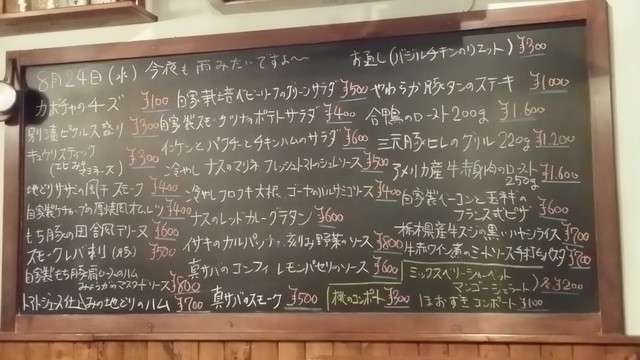 8月24日(水) 今夜も雨みたいですよ〜
お通し(バジルチキンのリエット) ¥300
カボチャのチーズ ¥100
別漬ピクルス盛り ¥300
キュウリスティック ¥300
地どりササミの風干スモーク ¥400
自家製ケチャップの厚焼風オムレツ ¥400
もち豚の田舎風テリーヌ ¥600
スモークレバ刺 ¥500
自家製もち豚肩ロースのハム
みょうがのマスタードソース ¥800
トマトジュース仕込みの地どりのハム ¥700
自家栽培ベビーリーフのグリーンサラダ ¥500
自家製スモークツナのポテトサラダ ¥400
インゲンとパクチとチキンハムのサラダ ¥600
冷やしナスのマリネ フレッシュトマトのジュレソース ¥500
冷やしフロフキ大根、ゴーヤのハルサミコソース ¥400
ナスのレッドカレーグラタン ¥600
イサキのカルパッチョ、刻み野菜のソース ¥800
真サバのコンフィ レモンパセリのソース ¥600
真サバのスモーク ¥500
桃のコンポート ¥300
やわらか豚タンのステキ ¥1000
合鴨のロースト200g ¥1.600
三元豚ヒレのグリル 220g ¥1.200
アメリカ産牛赤身肉のロースト
250g ¥1.600
自家製ベーコンと玉ネギの
フランス式ピザ ¥600
栃木県産牛スジの黒いハヤシライス ¥700
牛赤ワイン煮のミートソース手打ちパスタ ¥700
ミックスベリーシャーベット
マンゴージェラート 各¥200
ほおずきコンポート ¥100